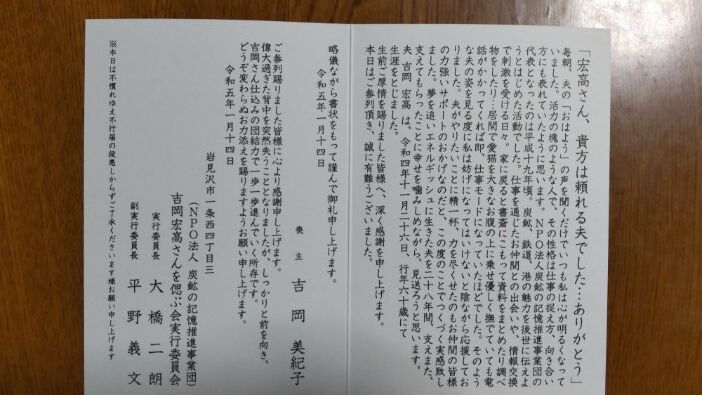 「宏高さん、貴方は頼れる夫でした…ありがとう」
毎朝、夫の「おはよう」の声を聞くだけでいつも私は心が明るくなって
いました。活力の塊のような人で、その性格は仕事の捉え方、向き合い
方にも表れていたように思います。NPO法人炭鉱の記憶推進事業団の
代表となったのは平成十九年頃。炭鉱、鉄道、港の魅力を後世に伝えよ
うとはじめた活動でした。仕事を通じたお仲間との出会いや、情報交換
で刺激を受ける日々。家に戻ると書斎にこもって資料をまとめたり調べ
物をしたり…居間で愛猫を大きなお腹の上に乗せ優しく撫でていても電
話がかかってくれば即、仕事モードになっていたほどでした。そのよう
な夫の姿を見る度に私は妨げになってはいけないと陰ながら応援してお
りました。夫がやりたいことに精一杯、力を尽くせたのもお仲間の皆様
の力強いサポートのおかげなのだと、この度のことでつくづく実感致し
ました。夢を追いエネルギッシュに生きた夫を二十八年間、支えまた、
支えてもらったことに幸せを噛みしめながら、見送ろうと思います。
夫 吉岡 宏高 は、令和四年十一月二十六日、行年六十歳にて
生涯をとじました。
生前ご厚情を賜りました皆様へ、深く感謝を申し上げます。
本日はご参列頂き、誠に有難うございました。
略儀ながら書状をもって謹んで御礼申し上げます。
令和五年一月十四日
喪主 吉岡 美紀子
ご参列賜りました皆様に心より感謝申し上げます。
偉大過ぎた背中を突然失うこととなりましたが、しっかりと前を向き、
吉岡さん仕込みの団結力で一歩一歩進んでいく所存です。
どうぞ変わらぬお力添えを賜りますようお願い申し上げます。
令和五年一月十四日
岩見沢市一条西四丁目三
（NPO法人 炭鉱の記憶推進事業団）
吉岡宏高さんを偲ぶ会実行委員会
実行委員長 大橋二朗
副実行委員長 平野義文
※本日は不慣れゆえ不行届の段悪しからずご了承くださいます様お願い申し上げます